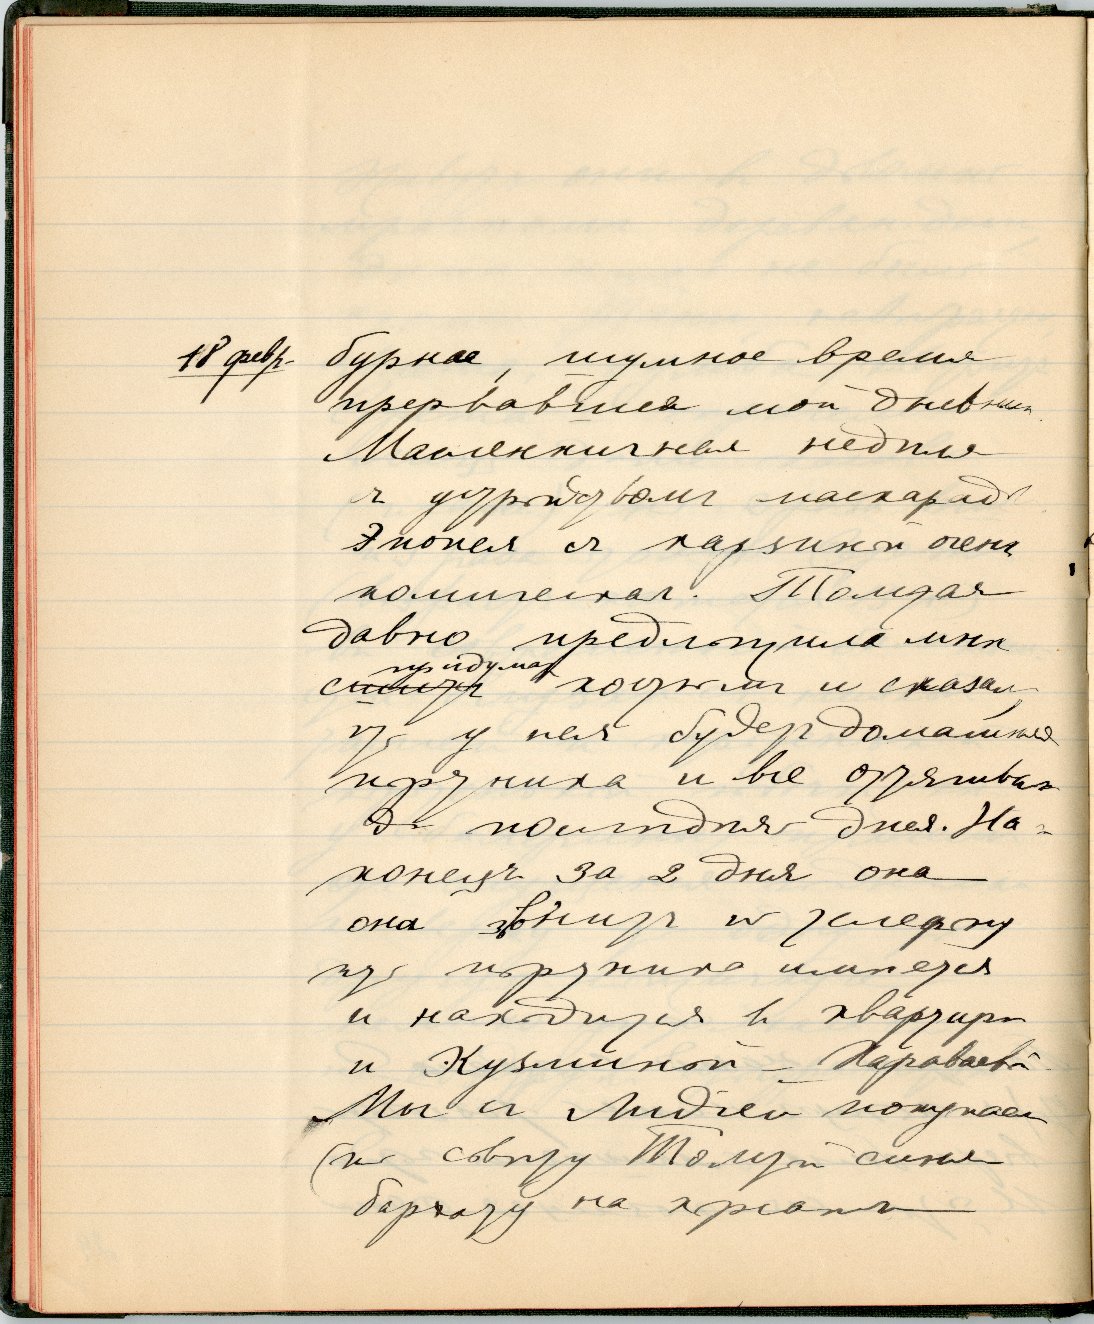 18 февр. бурное, шумное время
прервавшее мой дневник
Масленничная неделя
с устройством маскарада
Эпопея съ картиной очень
комическая. Толстая
давно предложила мнѣ
сшить придумать костюмъ и сказала
что у нея будет домашняя
и все оттягивала
до послѣдняго дня. На-
конецъ за 2 дня она
она звонитъ по телефону
что портниха имѣется
и находится в квартирѣ
и Кузьминой - Караваевой
Мы съ Лидіей покупаем
(по совѣту Толстой синяго
бархату на